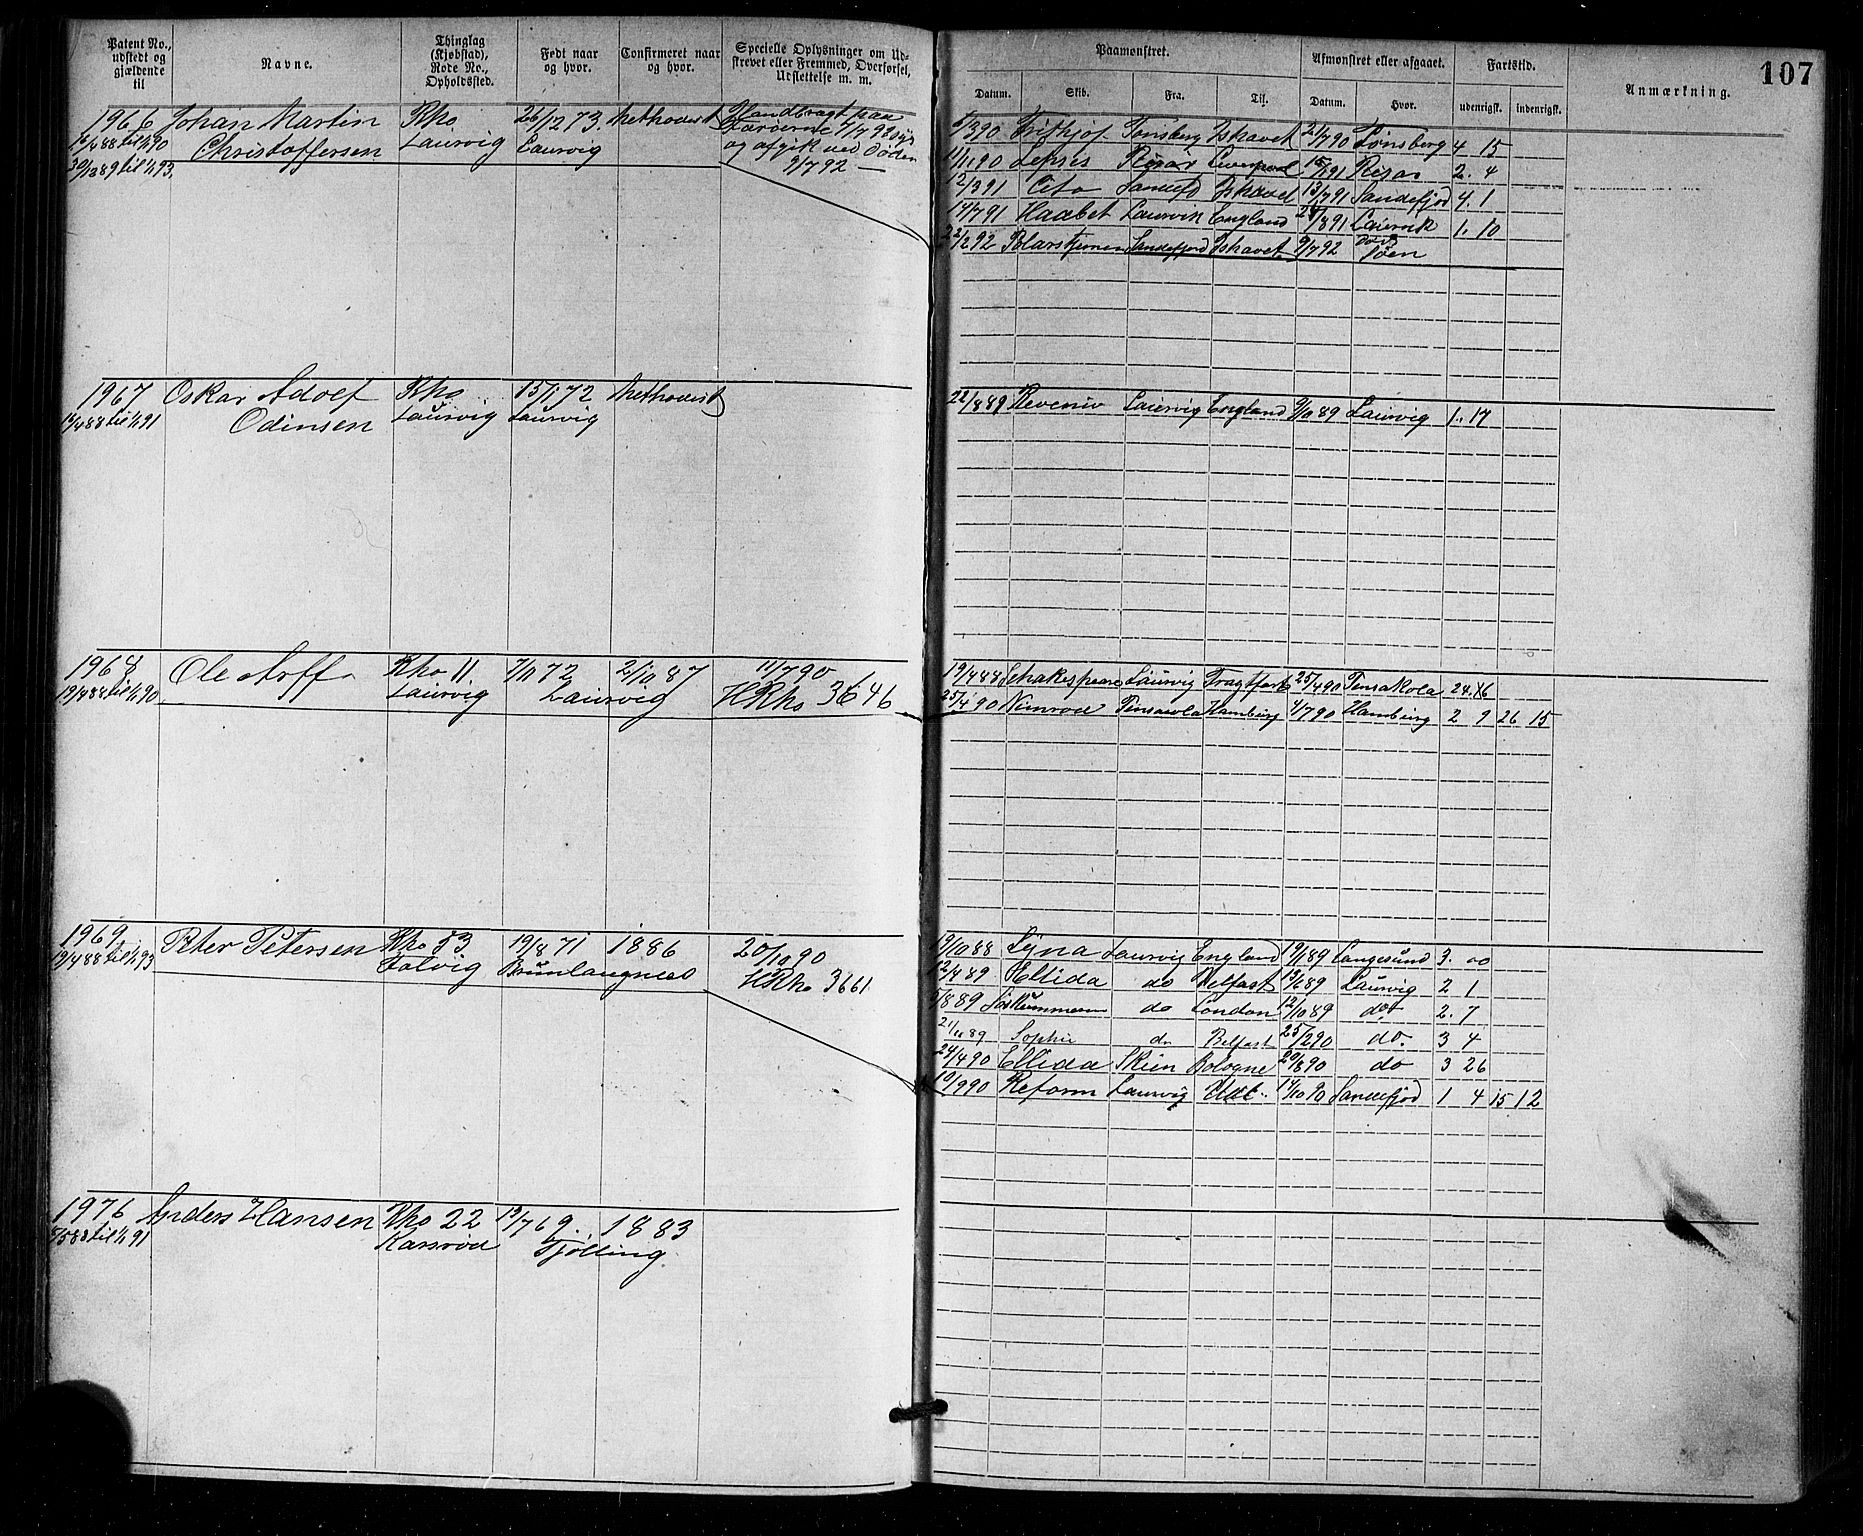 Patent No., udstedt og gjældende til
Navne.
Thinglag (Kjøbstad), Rode No., Opholdssted.
Født naar og hvor.
Confirmeret naar og hvor.
Specielle Oplysninger om Udstrevet eller Fremmed, Overførsel, Udslettelse m. m.
Paamønstret.
Afmønstret eller afgaaet.
Fartstid.
Anmærkning.
107
Datum.
Skib.
Fra.
Til.
Datum.
Hvor.
udenrigsk.
indenrigsk.
1966 Johan Martin Rho 26/12 73. Methodist Landbragt paa
til 1/1 90 Christoffersen Laurvig Laurvig Færøerne 4/7 92 syg
30/12 89 til 1/1 93. og afgik ved døden
9/7 92 —
5/3 90 Frithjof Tønsberg Ishavet 21/7 90 Tønsberg 4 15
11/11 90 Risør Liverpool 15/1 91 Risør 2. 4
12/3 91 Cito Sandefj Ishavet 13/7 91 Sandefjord 4. 1
14/7 91 Haabet Laurvik England 24/8 91 Laurvik 1. 10
22/2 92 Polarstjernen Sandefjord Ishavet 9/7 92 død
1967 Oskar Adolf Rho 15/1 72 Methodist
til 1/1 91 Odinsen Laurvig Laurvig
22/8 89 Laurvig England 9/10 89 Laurvig 1. 17
1968 Ole Arff Rho 11. 7/11 72 2/10 87 11/7 90
19/4 88 til 1/1 90 Laurvig Laurvig HRho 3646
19/4 88 Schakespeare Laurvig 25/4 90 Pensakola 24. 6
25/4 90 Nimrod Pensacola Hamburg 4/7 90 Hamburg 2 9 26 15
1969 Peter Petersen Rho 53 19/4 71 1886 20/10 90
19/4 88 til 1/1 93 Falvig Brunlangnæs HRho 3661
19/10 88 Signa Laurvig England 19/1 89 Langesund 3. 00
12/4 89 Ellida do Belfast 13/6 89 Laurvig 2 1
5/8 89 do London 12/10 89 do 2. 7
21/11 89 Sophie do Belfast 25/2 90 do. 3 4
24/4 90 Ellida Skien Bologne 20/8 90 do 3 26
10/9 90 Reform Laurvig Udl. 14/10 90 Sandefjord 1 4 15 12
1976 Anders Hansen Rho 22 19/7 69. 1883
5/5 88 til 1/1 91 Tjølling.